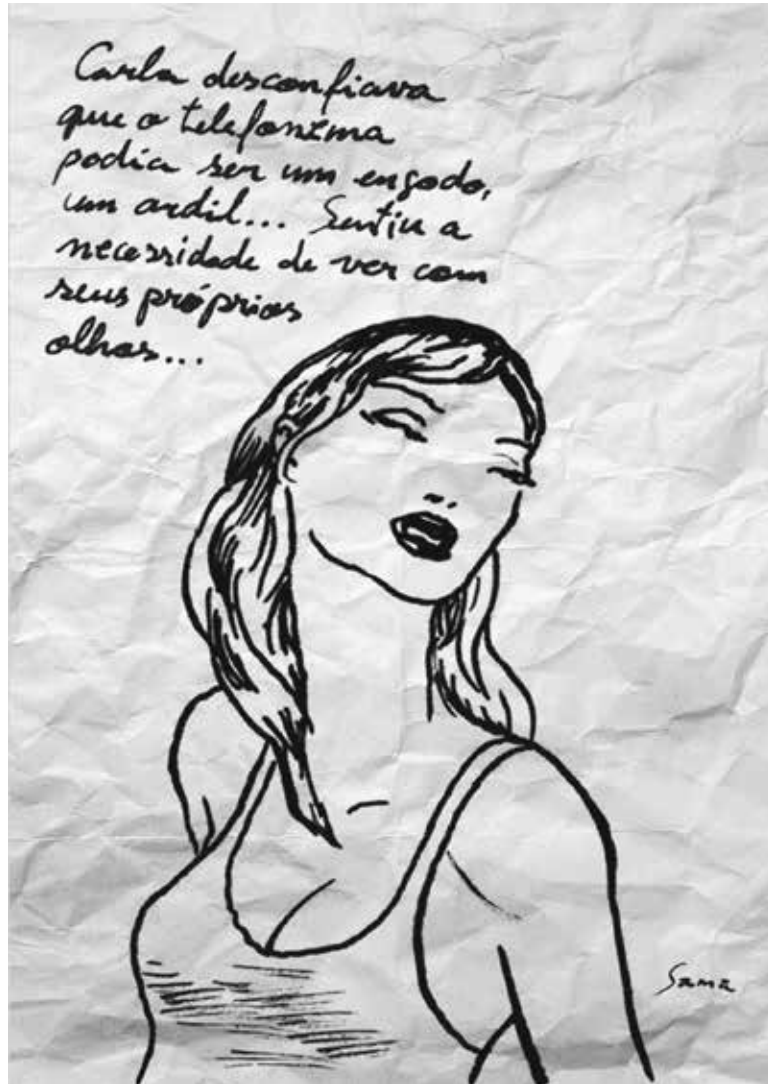 Carla desconfiava
que o telefonema
podia ser um engodo,
um ardil... Sentiu a
necessidade de ver com
seus próprios
olhos...
Sama